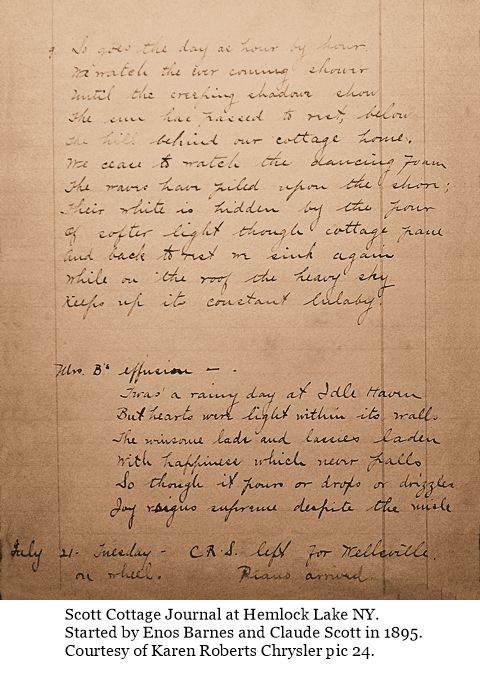 9 So goes the day as hour by hour
We watch the ever coming shower
Until the creeping shadows show
The sun has passed to rest, below
the hill behind our cottage home.
We cease to watch the dancing foam
The waves have piled upon the shore;
Their white is hidden by the pour
Of softer light though cottage pane
And back to rest we sink again
While on the roof the heavy sky
Keeps up its constant lulaby.
Mrs. B's effusion - .
Twas a rainy day at Idle Haven
But hearts were light within its walls
The winsome lads and lassies laden
With happiness which never palls
So though it pours or drops or drizzles
Joy reigns supreme despite the
July 21. Tuesday - C.R.S. left for Wellsville.
on wheel. Piano arrived.
Scott Cottage Journal at Hemlock Lake NY.
Started by Enos Barnes and Claude Scott in 1895.
Courtesy of Karen Roberts Chrysler pic 24.